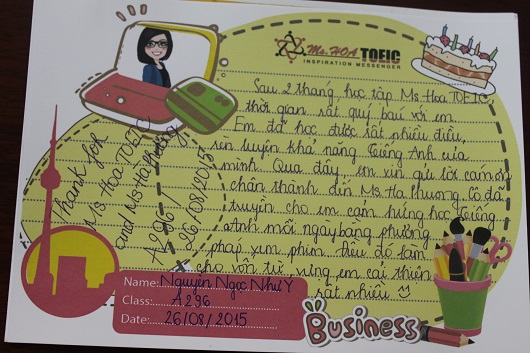 Ms. HOA TOEIC
INSPIRATION MESSENGER
Sau 2 tháng học tập Ms Hoa TOEIC,
thời gian rất quý báu với em.
Em đã học được rất nhiều điều,
rèn luyện khả năng Tiếng Anh của
mình. Qua đây, em xin gửi lời cám ơn
chân thành đến Ms Hà Phương. Cô đã
truyền cho em cảm hứng học Tiếng
Anh mỗi ngày bằng phương
pháp xem phim, điều đó làm
cho vốn từ vựng em cải thiện
rất nhiều
Thank for
Ms Hoa TOEIC
and Ms Ha Phuong
A296
26/08/2015
Name: Nguyễn Ngọc Như Ý
Class: A296
Date: 26/08/2015
Business